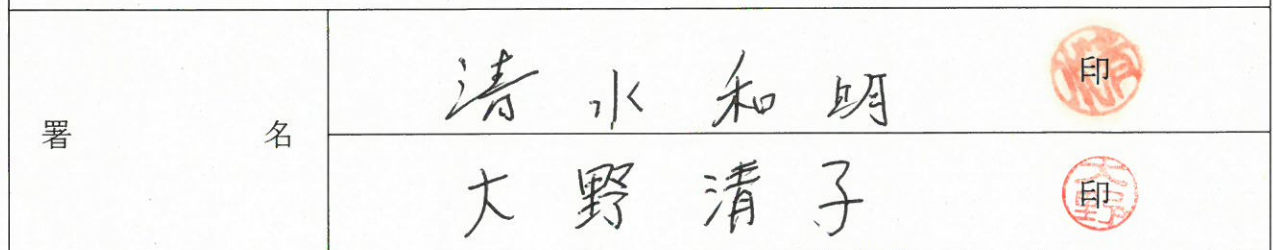 署名
清水和明 印
大野清子 印
大野